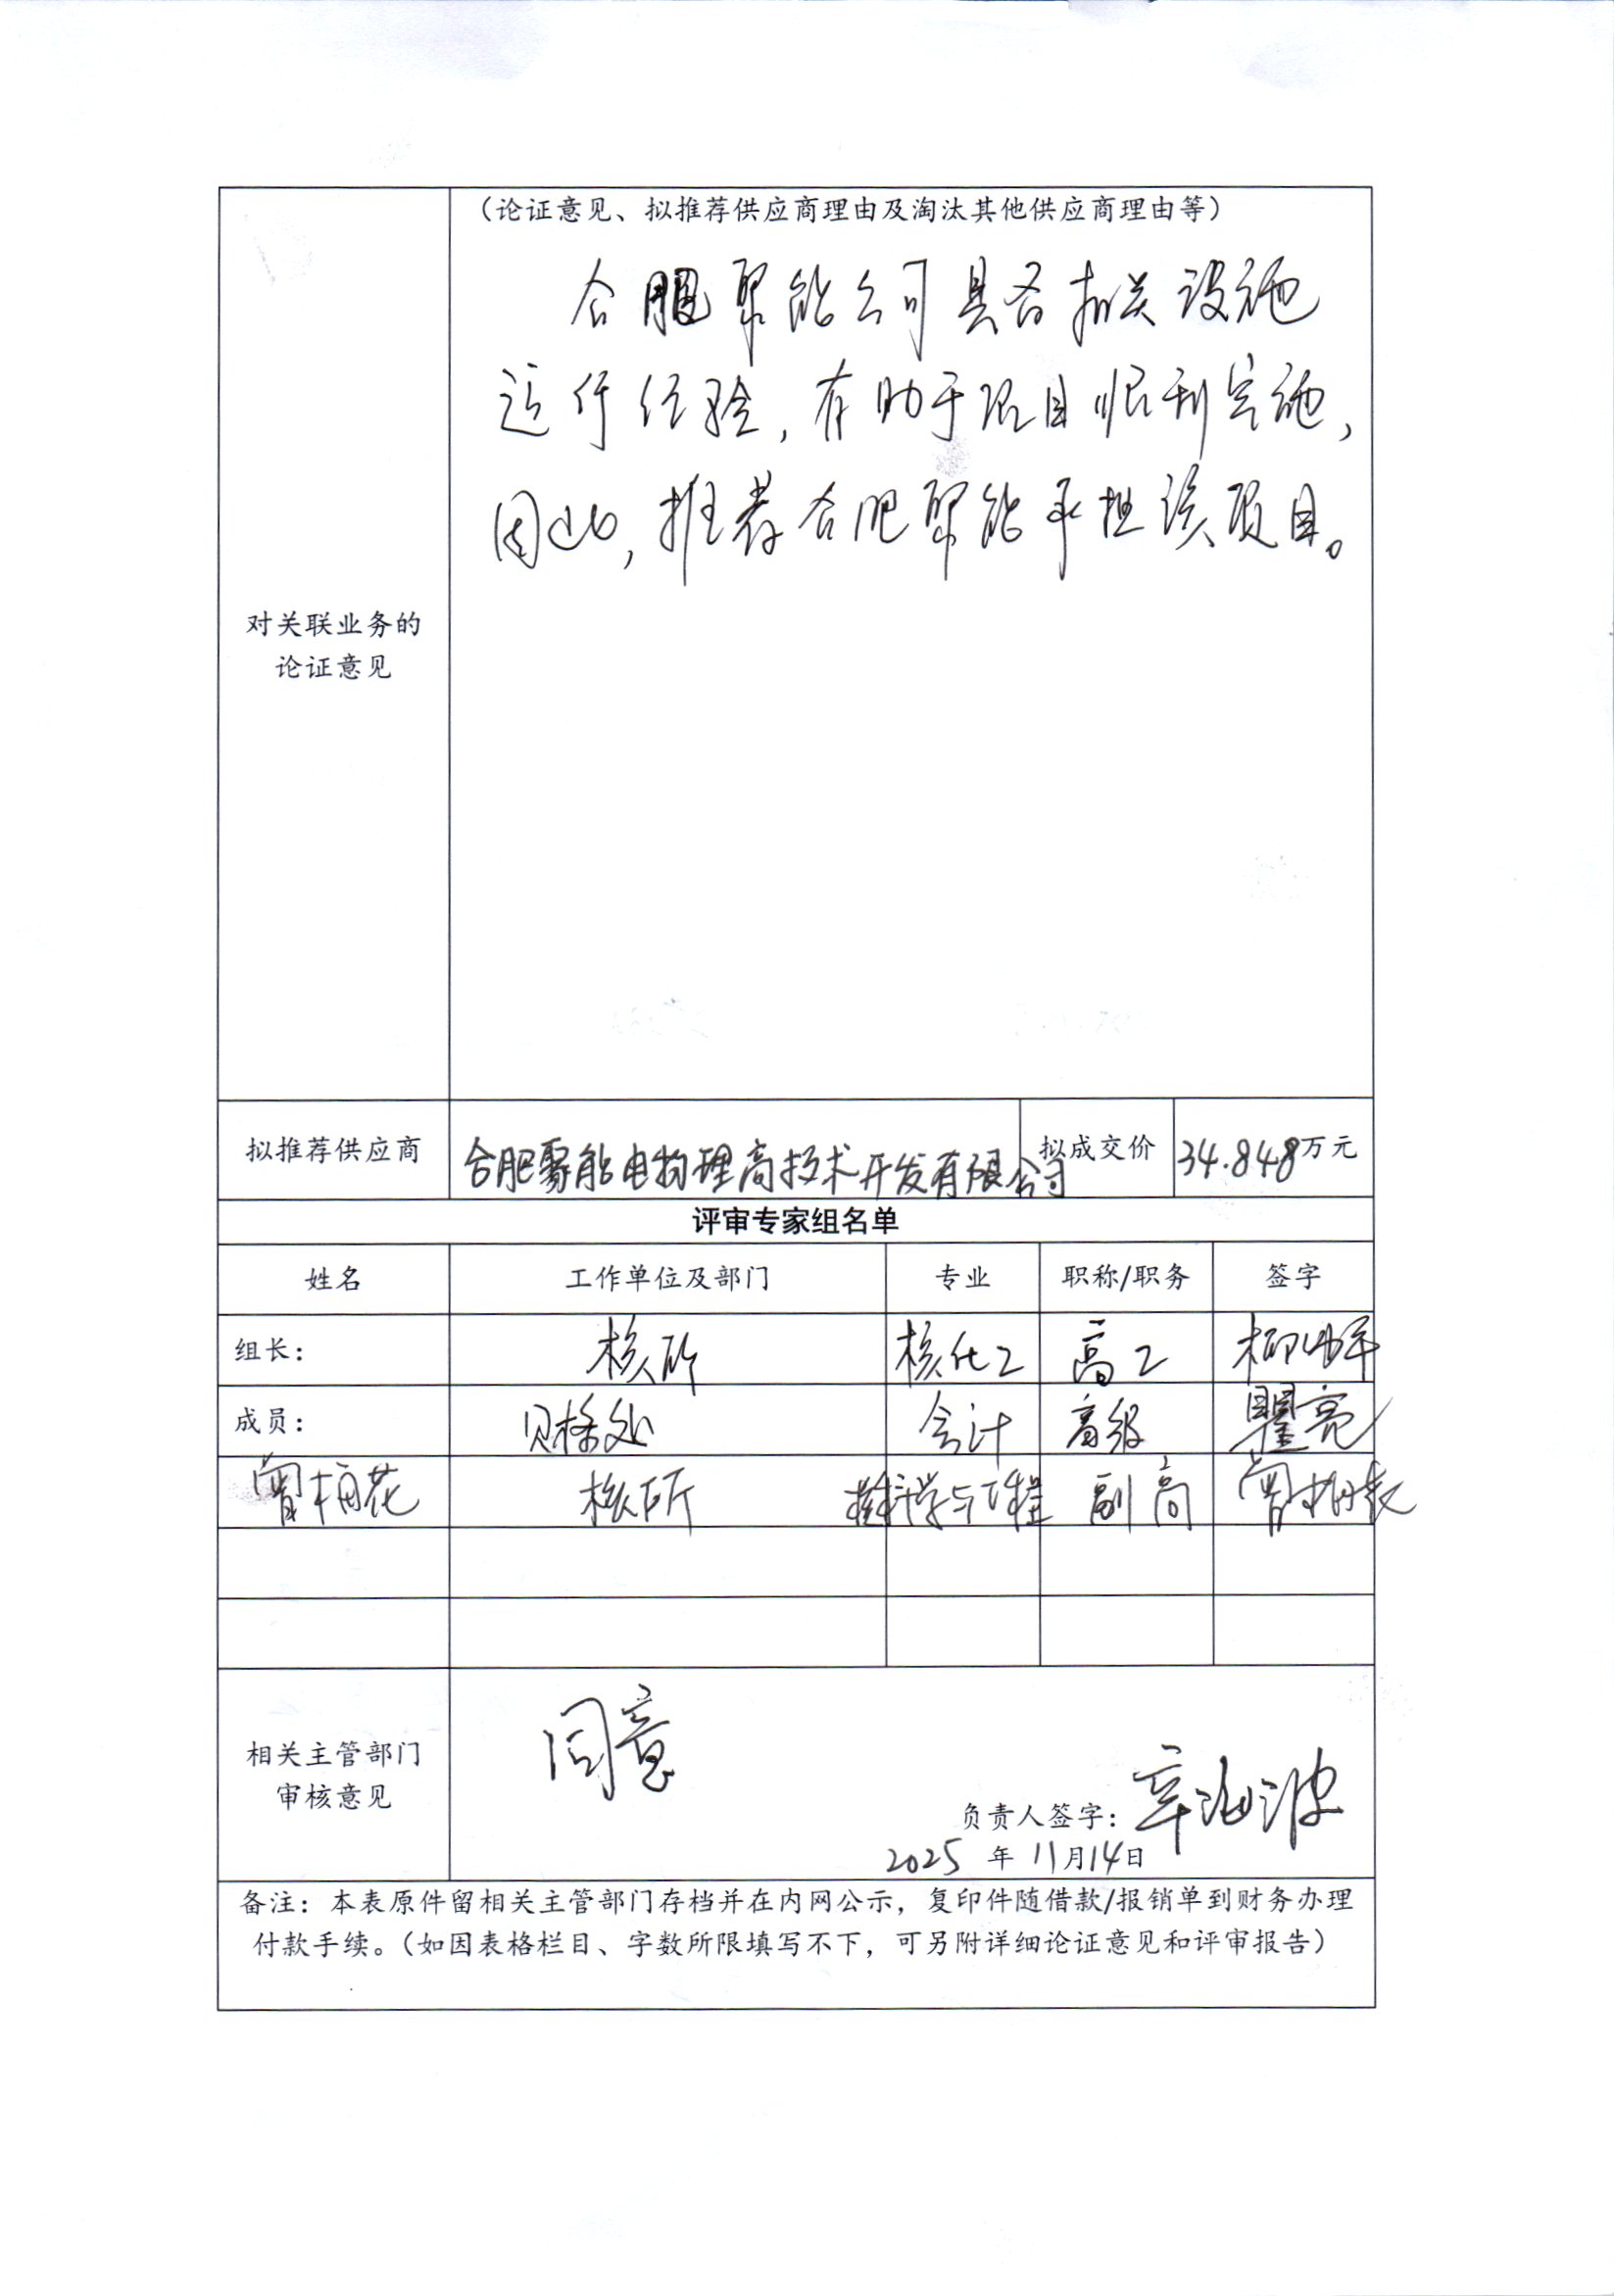 （论证意见、拟推荐供应商理由及淘汰其他供应商理由等）
合肥聚能公司具备相关设施
运行经验，有助于项目顺利实施，
因此，推荐合肥聚能承担该项目。
对关联业务的
论证意见
拟推荐供应商 合肥聚能电物理高技术开发有限公司 拟成交价 34.848万元
评审专家组名单
姓名 工作单位及部门 专业 职称/职务 签字
组长： 核所 核化工 高工
成员： 财务处 会计 高级 瞿亮
曾梅花 核所 科学与工程 副高 曾梅花
同意
相关主管部门
审核意见
负责人签字：辛海波
2025 年 11月14日
备注：本表原件留相关主管部门存档并在内网公示，复印件随借款/报销单到财务办理
付款手续。（如因表格栏目、字数所限填写不下，可另附详细论证意见和评审报告）